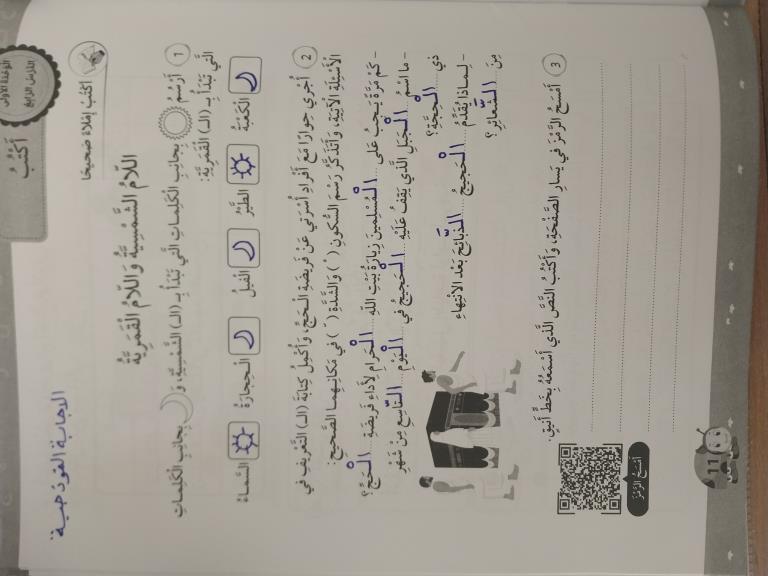 الوحدة الأولى
الدرس الرابع
أَكْتُبُ
الاجابة النموذجية
أَكْتُبُ إِمْلَاءً صَحِيحًا
اللَّامُ الشَّمْسِيَّةُ وَاللَّامُ الْقَمَرِيَّةُ
1 أَرْسُمُ بِجَانِبِ الْكَلِمَاتِ الَّتِي تَبْدَأُ بِـ (الـ) الشَّمْسِيَّةِ، وَ بِجَانِبِ الْكَلِمَاتِ
الَّتِي تَبْدَأُ بِـ (الـ) الْقَمَرِيَّةِ:
الْكَعْبَةُ الطَّيْرُ الْفِيلُ الْحِجَارَةُ السَّمَاءُ
2 أُجْرِي حِوَارًا مَعَ أَفْرَادِ أُسْرَتِي عَنْ فَرِيضَةِ الْحَجِّ، وَأُكْمِلُ كِتَابَةَ (الـ) التَّعْرِيفِ فِي
الْأَسْئِلَةِ الْآتِيَةِ، وَأَتَذَكَّرُ رَسْمَ السُّكُونِ ( ْ ) وَالشَّدَّةِ ( ّ ) فِي مَكَانِهِمَا الصَّحِيحِ:
- كَمْ مَرَّةً يَجِبُ عَلَى الْمُسْلِمِينَ زِيَارَةُ بَيْتِ اللهِ الْحَرَامِ لِأَدَاءِ فَرِيضَةِ الْحَجِّ؟
- مَا اسْمُ الْجَبَلِ الَّذِي يَقِفُ عَلَيْهِ الْحَجِيجُ فِي الْيَوْمِ التَّاسِعِ مِنْ شَهْرِ
ذِي الْحِجَّةِ؟
- لِمَاذَا يُقَدِّمُ الْحَجِيجُ الذَّبَائِحَ بَعْدَ الِانْتِهَاءِ
مِنَ الشَّعَائِرِ؟
3 أَمْسَحُ الرَّمْزَ فِي يَسَارِ الصَّفْحَةِ، وَأَكْتُبُ النَّصَّ الَّذِي أَسْمَعُهُ بِخَطٍّ أَنِيقٍ.
أَمْسَحُ الرَّمْزَ
11